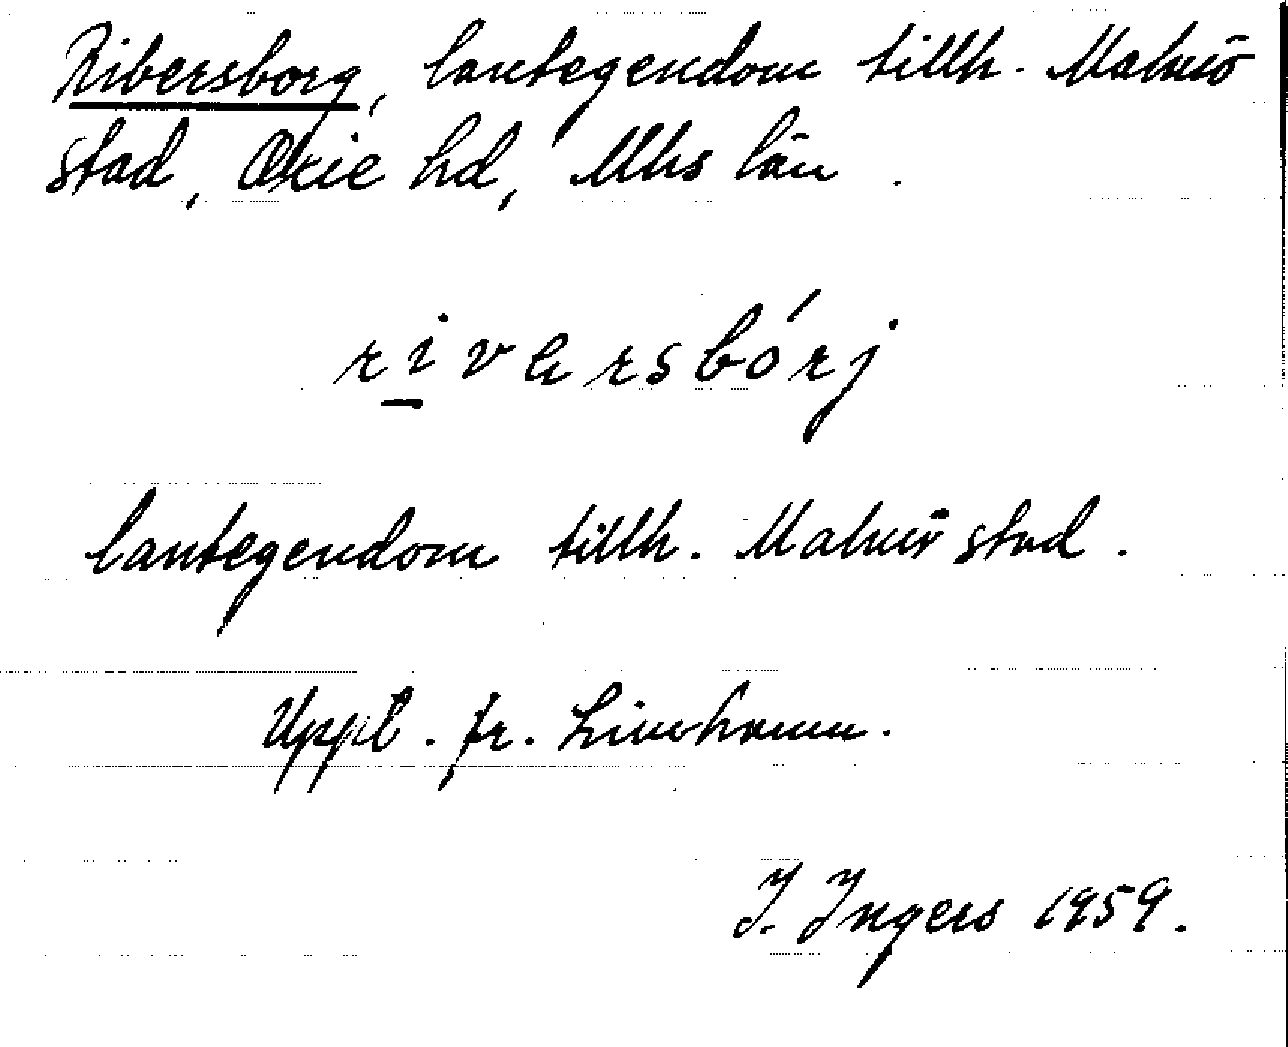 Ribersborg, lantegendom tillh. Malmö
stad, Oxie hd, Mhs län.
riversbórj
lantegendom tillh. Malmö stad.
Uppt. fr. Limhamn.
I. Ingers 1959.